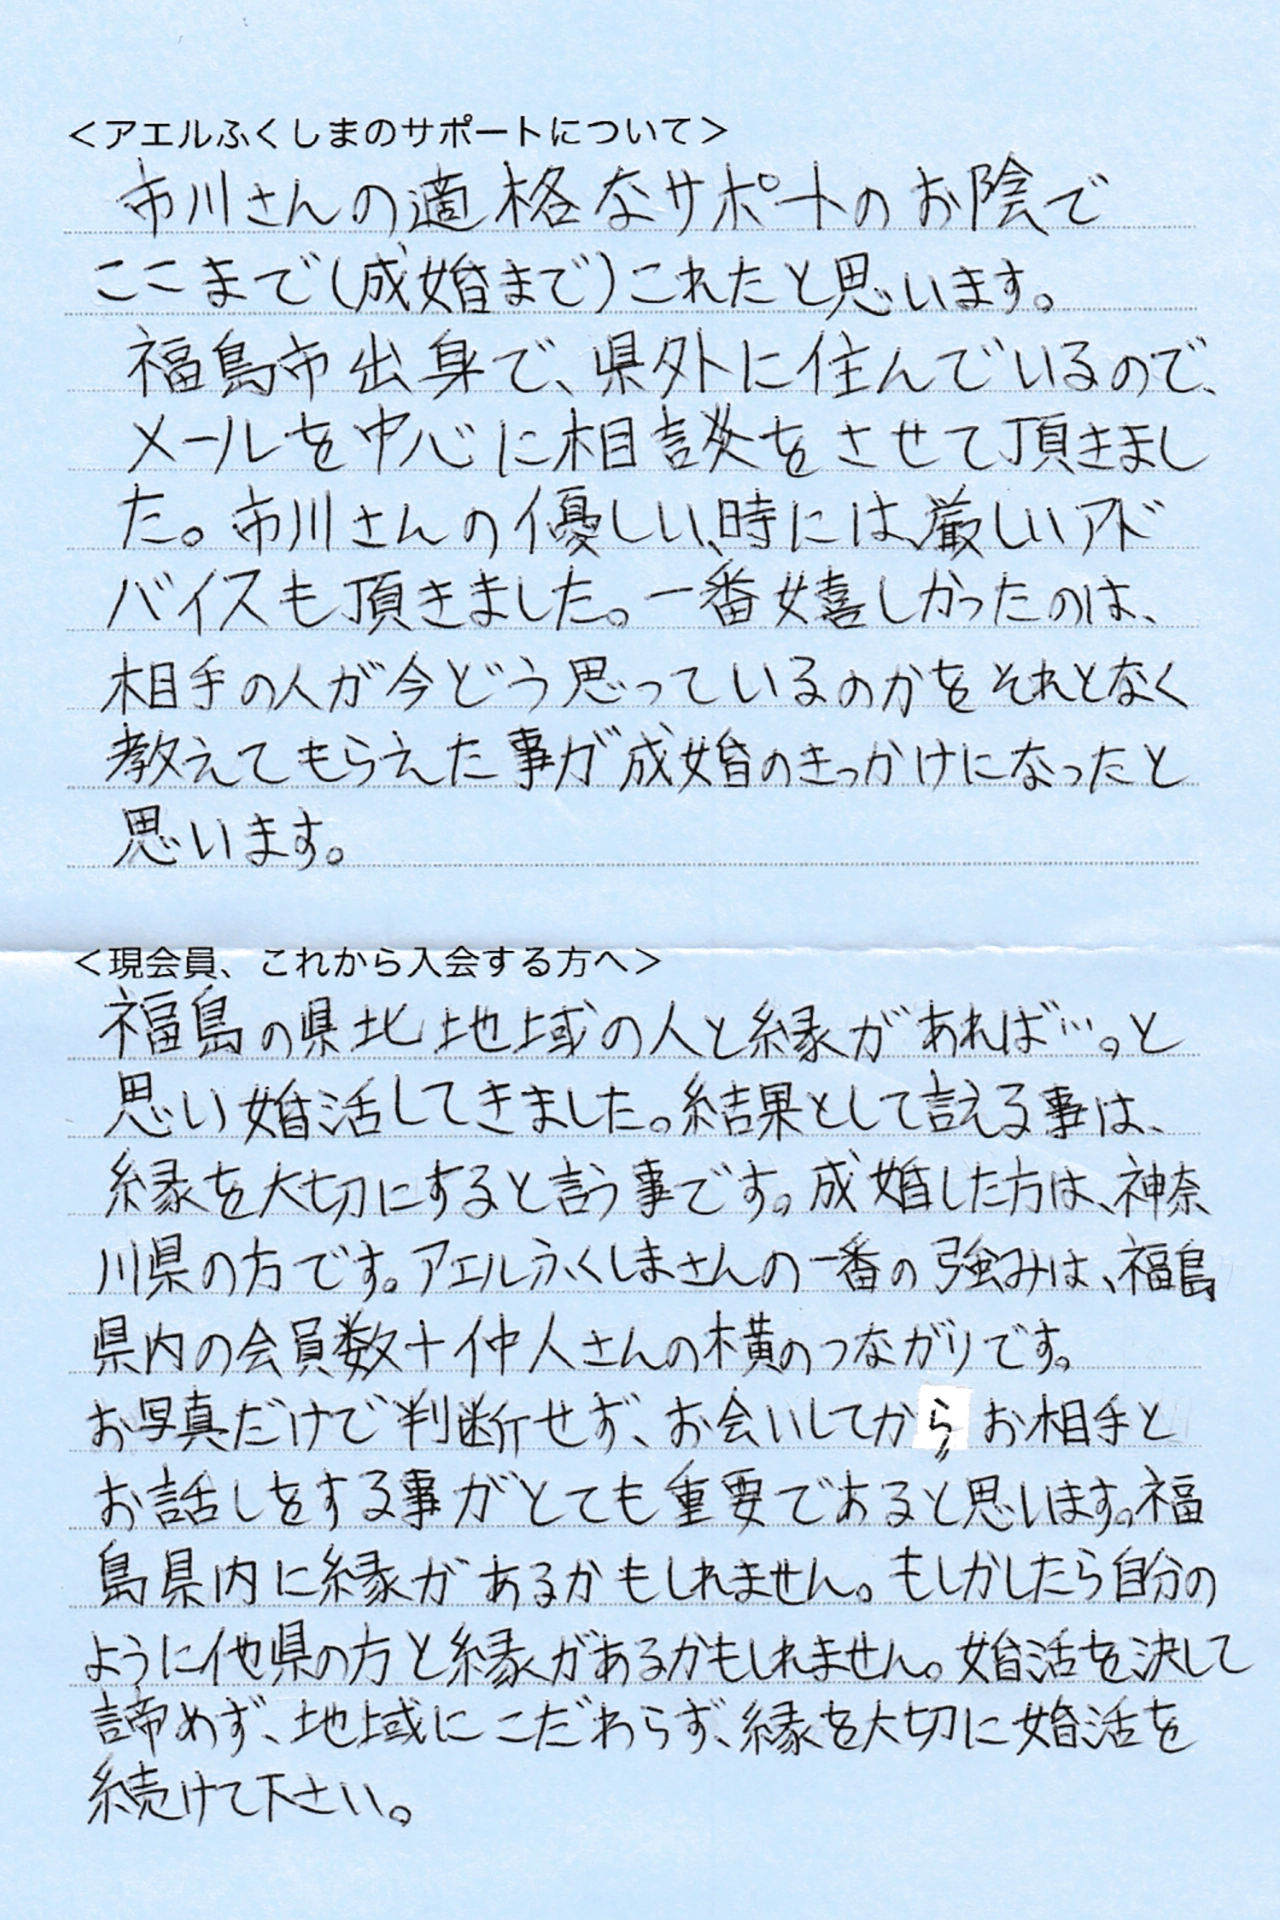 ＜アエルふくしまのサポートについて＞
市川さんの適格なサポートのお陰で
ここまで(成婚まで)これたと思います。
福島市出身で、県外に住んでいるので、
メールを中心に相談をさせて頂きまし
た。市川さんの優しい、時には、厳しいアド
バイスも頂きました。一番嬉しかったのは、
相手の人が今どう思っているのかをそれとなく
教えてもらえた事が成婚のきっかけになったと
思います。
＜現会員、これから入会する方へ＞
福島の県北地域の人と縁があれば…。と
思い婚活してきました。結果として言える事は、
縁を大切にすると言う事です。成婚した方は、神奈
川県の方です。アエルふくしまさんの一番の強みは、福島
県内の会員数＋仲人さんの横のつながりです。
お写真だけで判断せず、お会いしてからお相手と
お話しをする事がとても重要であると思います。福
島県内に縁があるかもしれません。もしかしたら自分の
ように他県の方と縁があるかもしれません。婚活を決して
諦めず、地域にこだわらず、縁を大切に婚活を
続けて下さい。